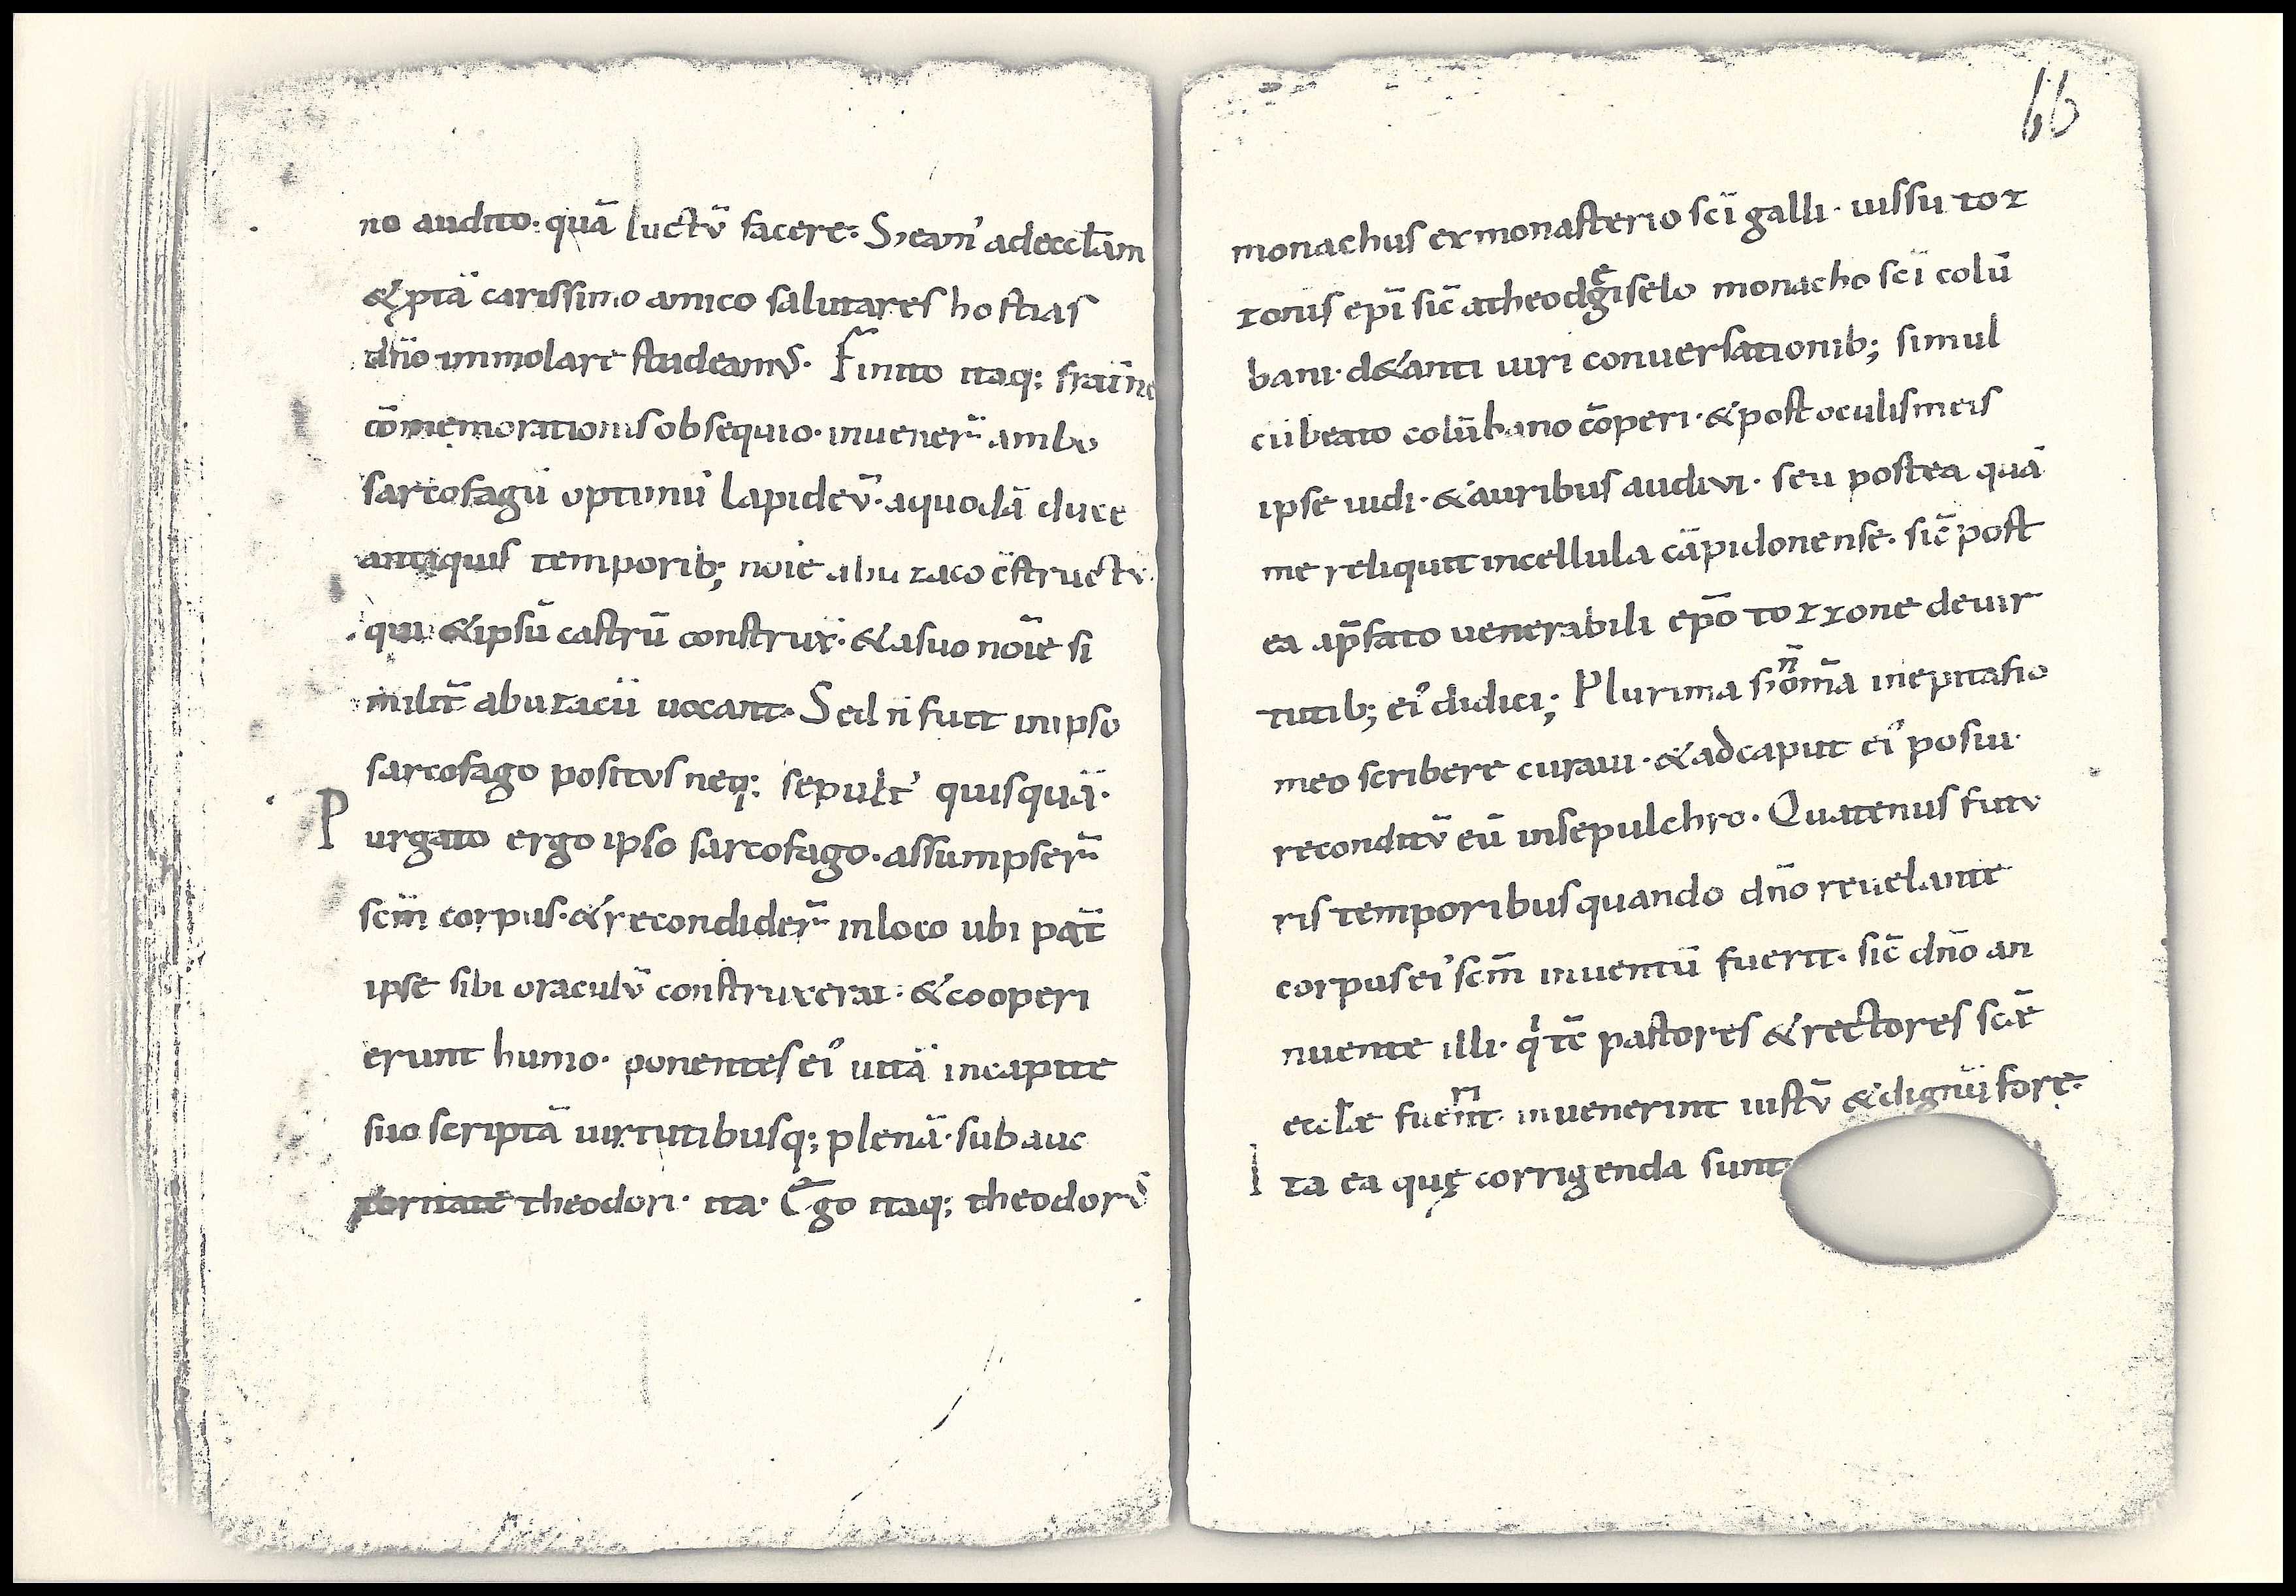 no audito· quā luctū facere: S; eam᾽ ad eccl̄am
& p tā carissimo amico salutares hostias
dn̄o immolare studeam᾽· Finito itaq; frat̄ne
cōmemorationis obsequio· inuener̄ ambo
sarcofagū optimū lapideū· a quodā duce
antiquis temporib; noīe abuzaco c̄structū·
qui & ipsū castrū construx̄· & a suo noīe si
milit̄ abuzacū uocant· Sed n̄ fuit in ipso
sarcofago positus neq; sepult᾽ quisquā·
Purgato ergo ipso sarcofago· assumpser̄
scm̄ corpus· & recondider̄ in loco ubi pat̄
ipse sibi oraculū construxerat· & cooperi
erunt humo· ponentes ei᾽ uitā in capite
suo scriptā uirtutibusq; plenā· sub auc
toritate theodori· ita· Ego itaq; theodor᾽
66
monachus ex monasterio sci galli· iussu toz
zonis epī sic̄ a theodgeiselo monacho sci colū
bani· d&anti uiri conuersationib; simul
cū beato colūbano cōperi· & post oculis meis
ipse uidi· & auribus audiui· seu postea quā
me reliquit in cellula cāpidonense· sic̄ post
ea a p̄fato uenerabili ep̄o tozzone de uir
tutib; ei᾽ didici; Plurima si n̄ om̄a in epitafio
meo scribere curaui· & ad caput ei᾽ posui·
reconditū eū in sepulchro· Quatenus futu
ris temporibus quando dn̄o reuelante
corpus ei᾽ scm̄ inuentū fuerit· sic̄ dn̄o an
nuente illi· qⁱ tc̄ pastores & rectores scē
eccl̄æ fuerint· inuenerint iustū & dignū fore·
Ita ea quę corrigenda sunt